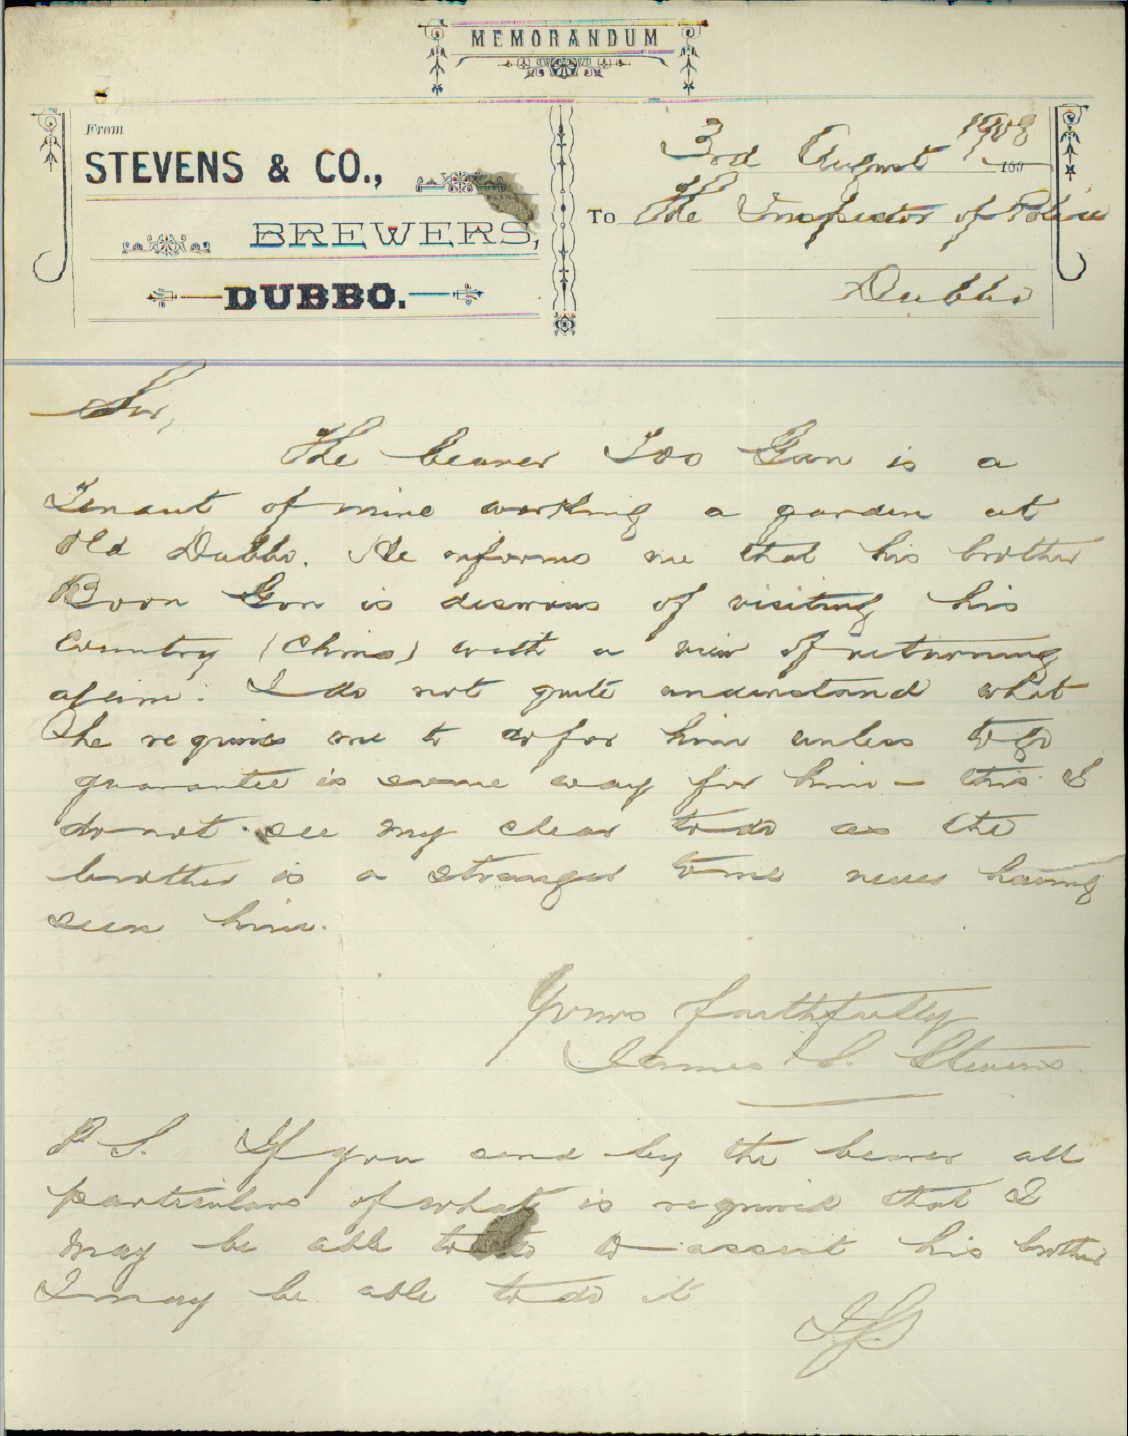 MEMORANDUM
From
STEVENS & CO.,
BREWERS,
DUBBO.
3rd August 1908
189
To The Inspector of Police
Dubbo
Sir,
The bearer Too Gan is a
Tenant of mine working a garden at
Old Dubbo. He informs me that his brother
Boon Gon is desirous of visiting his
Country (China) with a view of returning
again. I do not quite understand what
he requires me to do for him unless to go
guarantee is some way for him – this I
do not see my clear to do as the
brother is a stranger to me never having
seen him.
Yours faithfully
James S. Stevens
P.S. If you send by the bearer all
particulars of what is required that I
may be able to assist his brother
I may be able to do it
J.S.